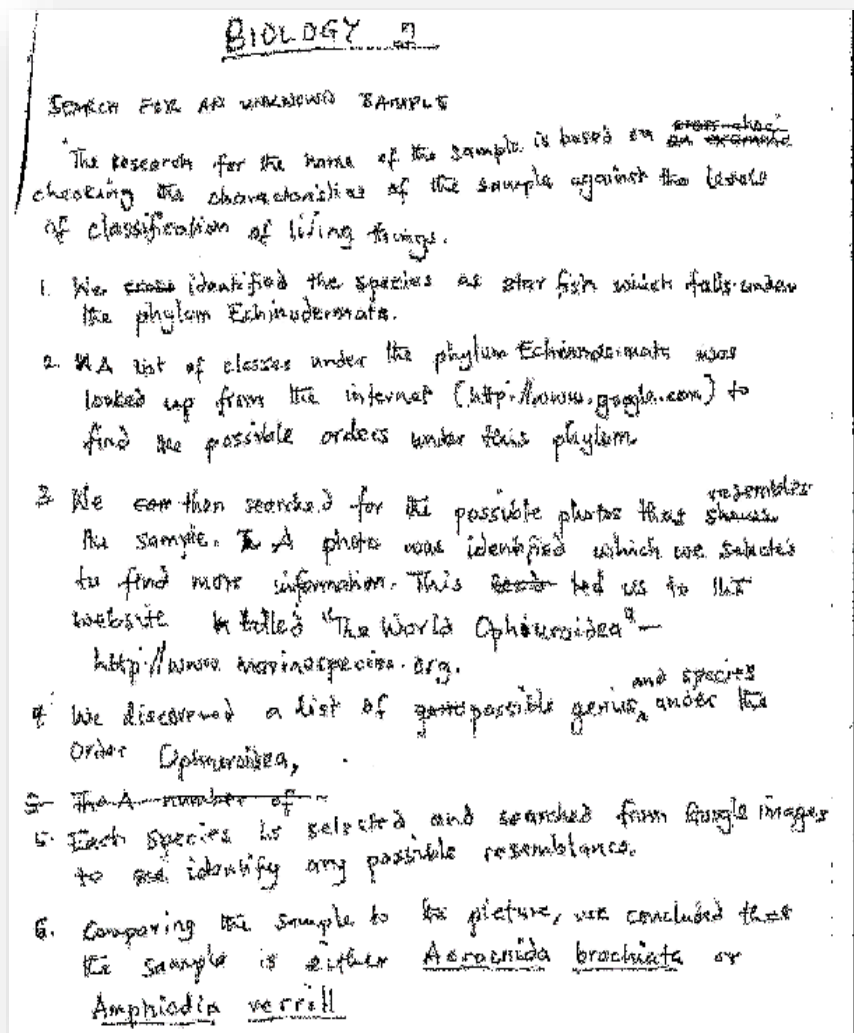 BIOLOGY
SEARCH FOR AN UNKNOWN SAMPLE
"The research for the name of the sample is based on
checking the characteristics of the sample against the levels
of classification of living things.
1. We identified the species as star fish which falls under
the phylum Echinodermata.
2. A list of classes under the phylum Echinodermata was
looked up from the internet (http://www.google.com) to
find the possible orders under this phylum
3. We then searched for the possible photos that resembles
the sample. A photo was identified which we selected
to find more information. This led us to the
website titled "The World Ophiuroidea" —
http://www.marinespecies.org.
4. We discovered a list of possible genius, and species under the
Order Ophiuroidea,
5. The A number of
5. Each species is selected and searched from Google images
to identify any possible resemblance.
6. Comparing the sample to the picture, we concluded that
the sample is either Acrocnida brachiata or
Amphiodia verrill